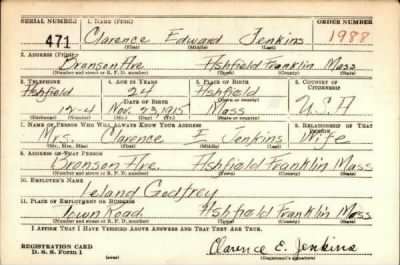 SERIAL NUMBER 1. NAME (Print) ORDER NUMBER
471 Clarence Edward Jenkins 1988
(First) (Middle) (Last)
2. ADDRESS (Print)
Bronson Ave Ashfield Franklin Mass
(Number and street or R. F. D. number) (Town) (County) (State)
3. TELEPHONE 4. AGE IN YEARS 5. PLACE OF BIRTH 6. COUNTRY OF CITIZENSHIP
Ashfield 24 Ashfield
DATE OF BIRTH (Town or county)
12-4 Nov. 23, 1915 Mass U.S.A
(Exchange) (Number) (Mo.) (Day) (Yr.) (State or country)
7. NAME OF PERSON WHO WILL ALWAYS KNOW YOUR ADDRESS 8. RELATIONSHIP OF THAT PERSON
Mrs. Clarence E Jenkins Wife
(Mr., Mrs., Miss) (First) (Middle) (Last)
9. ADDRESS OF THAT PERSON
Bronson Ave. Ashfield Franklin Mass
(Number and street or R. F. D. number) (Town) (County) (State)
10. EMPLOYER'S NAME
Leland Godfrey
11. PLACE OF EMPLOYMENT OR BUSINESS
Town Road Ashfield Franklin Mass
(Number and street or R. F. D. number) (Town) (County) (State)
I AFFIRM THAT I HAVE VERIFIED ABOVE ANSWERS AND THAT THEY ARE TRUE.
REGISTRATION CARD Clarence E. Jenkins
D. S. S. FORM 1 (over) (Registrant's signature)